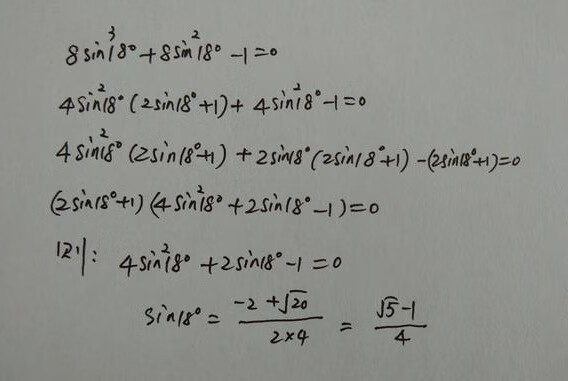 8sin³18°+8sin²18°-1=0
4sin²18°(2sin18°+1)+4sin²18°-1=0
4sin²18°(2sin18°+1)+2sin18°(2sin18°+1)-(2sin18°+1)=0
(2sin18°+1)(4sin²18°+2sin18°-1)=0
则: 4sin²18°+2sin18°-1=0
sin18°=(-2+√20)/(2×4)=(√5-1)/4